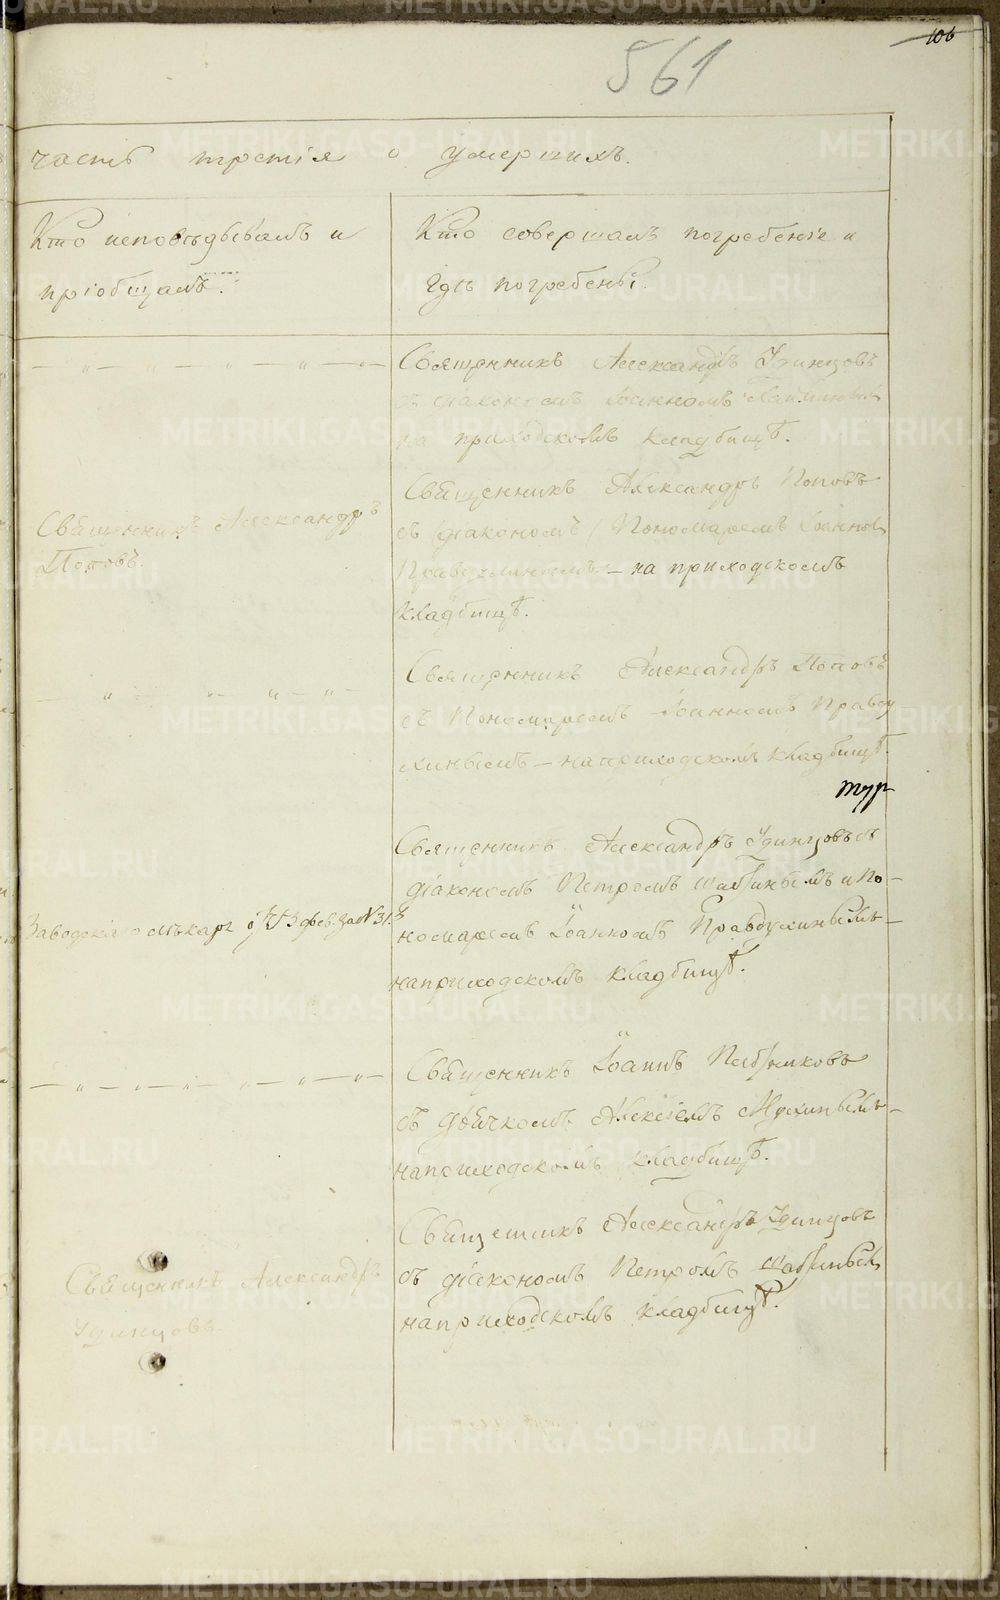 106
561
часть третія о умершихъ.
Кто исповѣдывалъ и
пріобщалъ.
Кто совершалъ погребеніе и
гдѣ погребены.
Священникъ Александръ Удинцовъ
съ діакономъ Іоанномъ
на приходскомъ кладбищѣ.
Священникъ Александръ
Поповъ.
Священникъ Александръ Поповъ
съ діакономъ / Пономаремъ Іоанном
Правдухинымъ – на приходскомъ
кладбищѣ.
Священникъ Александръ Поповъ
съ Пономаремъ Іоанномъ Правду
хинымъ – на приходскомъ кладбищѣ.
Священникъ Александръ Удинцовъ съ
діакономъ Петромъ Шабинымъ и По-
номаремъ Іоанномъ Правдухинымъ –
на приходскомъ кладбищѣ.
Священникъ Іоаннъ
съ дьячкомъ Алексіемъ Мухинымъ –
на приходскомъ кладбищѣ.
Священникъ Александръ
Удинцовъ.
Священникъ Александръ Удинцовъ
съ діакономъ Петромъ
на приходскомъ кладбищѣ.
METRIKI.GASO-URAL.RU